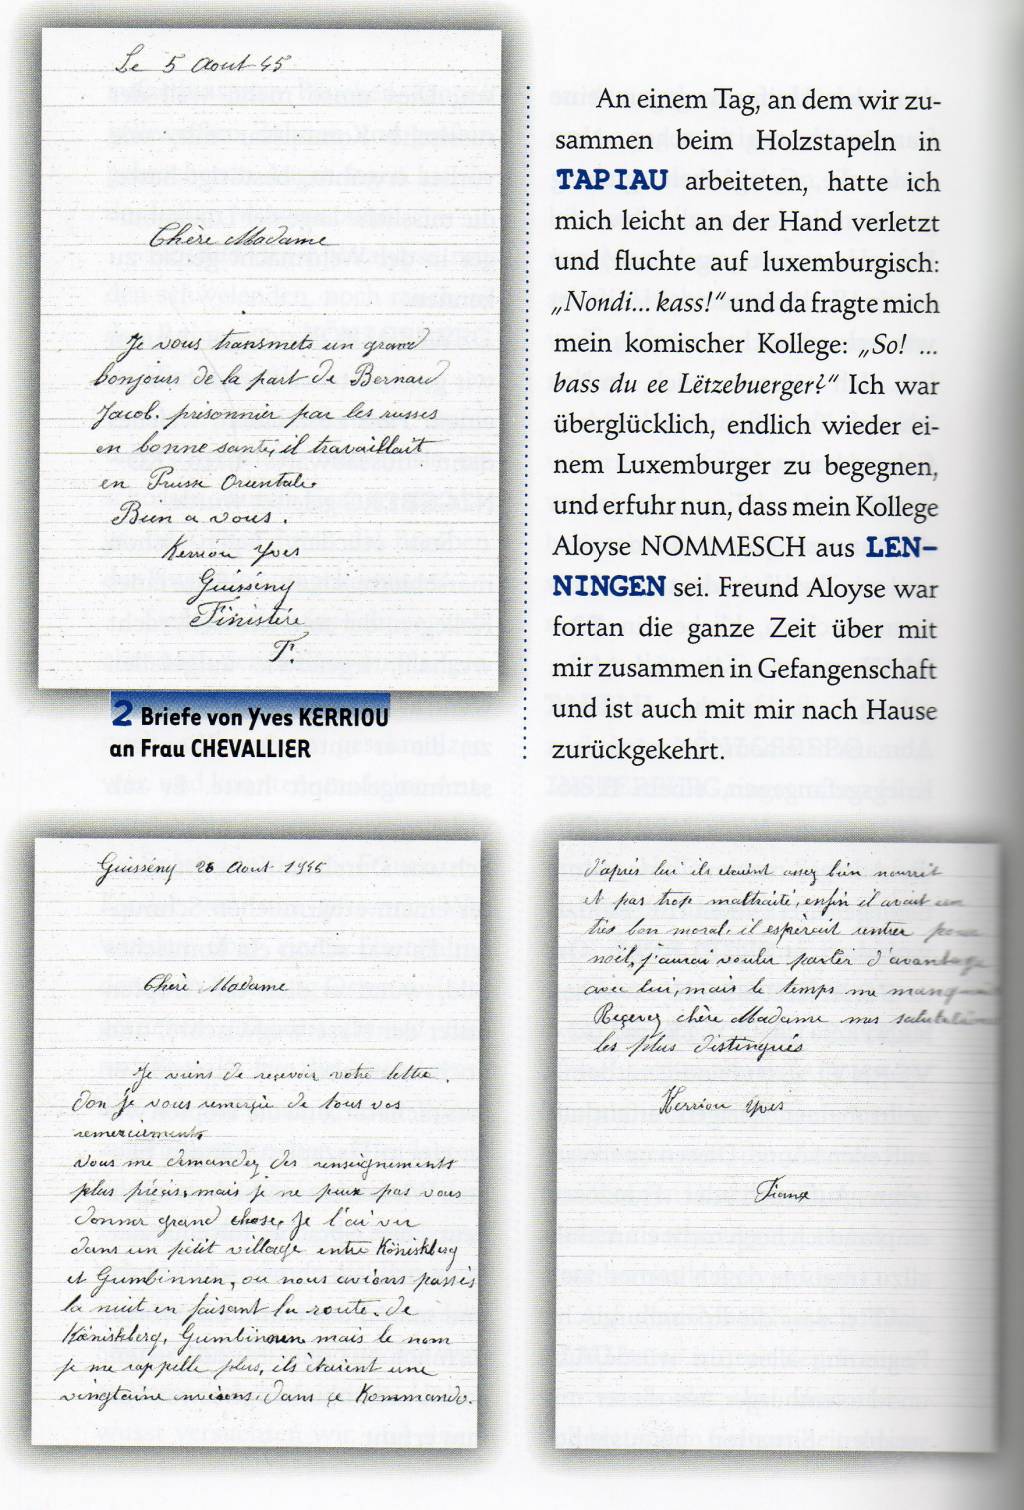 Le 5 Aout 45
Chère Madame
Je vous transmets un grand
bonjours de la part de Bernard
Jacob. prisonnier par les russes
en bonne santé, il travaillait
en Prusse Orientale.
Bien a vous.
Kerriou Yves
Guissény
Finistère
F.
2 Briefe von Yves KERRIOU
an Frau CHEVALLIER
An einem Tag, an dem wir zu-
sammen beim Holzstapeln in
TAPIAU arbeiteten, hatte ich
mich leicht an der Hand verletzt
und fluchte auf luxemburgisch:
„Nondi... kass!“ und da fragte mich
mein komischer Kollege: „So! ...
bass du ee Lëtzebuerger?“ Ich war
überglücklich, endlich wieder ei-
nem Luxemburger zu begegnen,
und erfuhr nun, dass mein Kollege
Aloyse NOMMESCH aus LEN-
NINGEN sei. Freund Aloyse war
fortan die ganze Zeit über mit
mir zusammen in Gefangenschaft
und ist auch mit mir nach Hause
zurückgekehrt.
Guissény 26 Aout 1945
Chère Madame
Je viens de reçevoir votre lettre.
don je vous remerçie de tous vos
remerciements
vous me demandez des renseignements
plus préçis, mais je ne peux pas vous
donner grand chose, Je l'ai vu
dans un pitit village entre Köniskberg
et Gumbinnen, ou nous avions passés
la nuit en faisant la route. de
Köniskberg, Gumbinnen mais le nom
je me rappelle plus, ils étaient une
vingtaine environs dans çe Kommando.
d'après lui ils étaient assez bien nourrit
et pas trop maltraité, enfin il avait un
très bon moral, il espèrait rentrer pour
noël, j'aurai voulu parler d'avantage
avec lui, mais le temps me manquait
Reçevez chère Madame mes salutations
les plus distingués
Kerriou Yves